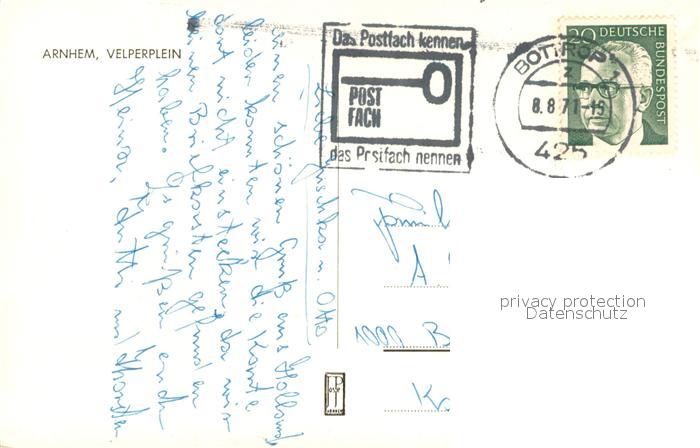 ARNHEM, VELPERPLEIN
Das Postfach kennen
POST
FACH
das Postfach nennen
BOTTROP
2
8.8.71-15
425
20 DEUTSCHE
BUNDESPOST
Otto
einen schönen Gruß aus Holland
leider konnten wir die Karte
dort nicht einstecken, da wir
keinen Briefkasten gefunden
haben. Es grüßen euch
Heiner,
A.
1000 B
K
privacy protection
Datenschutz